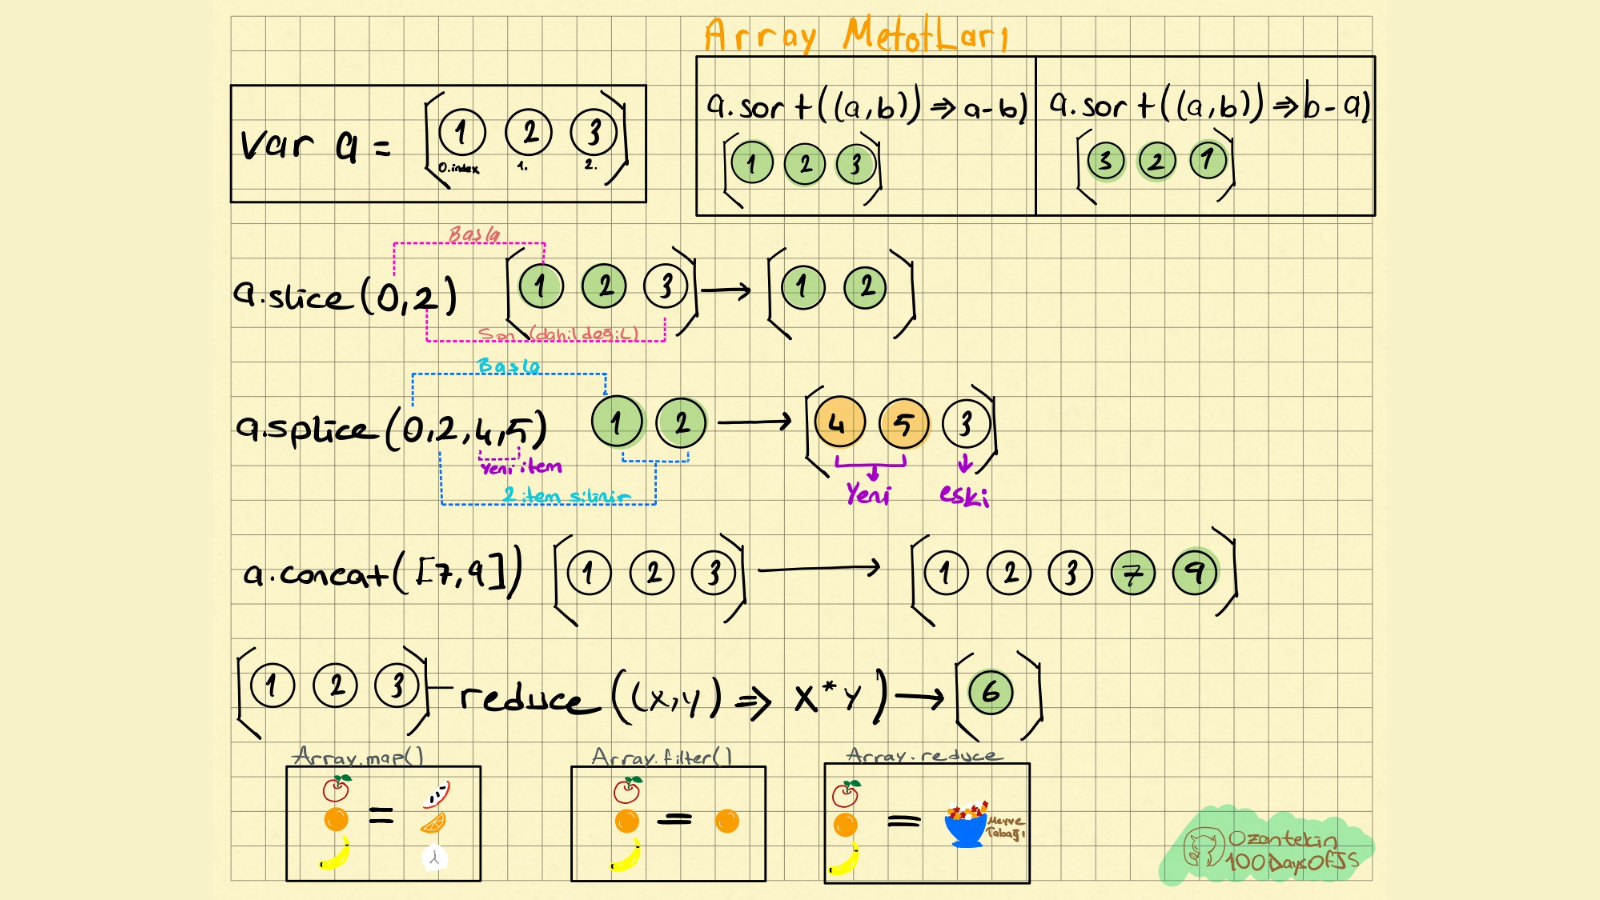 Array Metotları
var a = [1 2 3]
0.index 1. 2.
a.sort((a,b)) => a-b)
[1 2 3]
a.sort((a,b)) => b-a)
[3 2 1]
Başla
a.slice(0,2) [1 2 3] → [1 2]
Son (dahil değil)
Başla
a.splice(0,2,4,5) 1 2 → [4 5 3]
Yeni item
2 item silinir
Yeni eski
a.concat([7,9]) [1 2 3] → [1 2 3 7 9]
[1 2 3] - reduce((x,y) => x*y) → [6]
Array.map()
=
Array.filter()
=
Array.reduce
=
Meyve
Tabağı
Ozantekin
100DaysOfJS